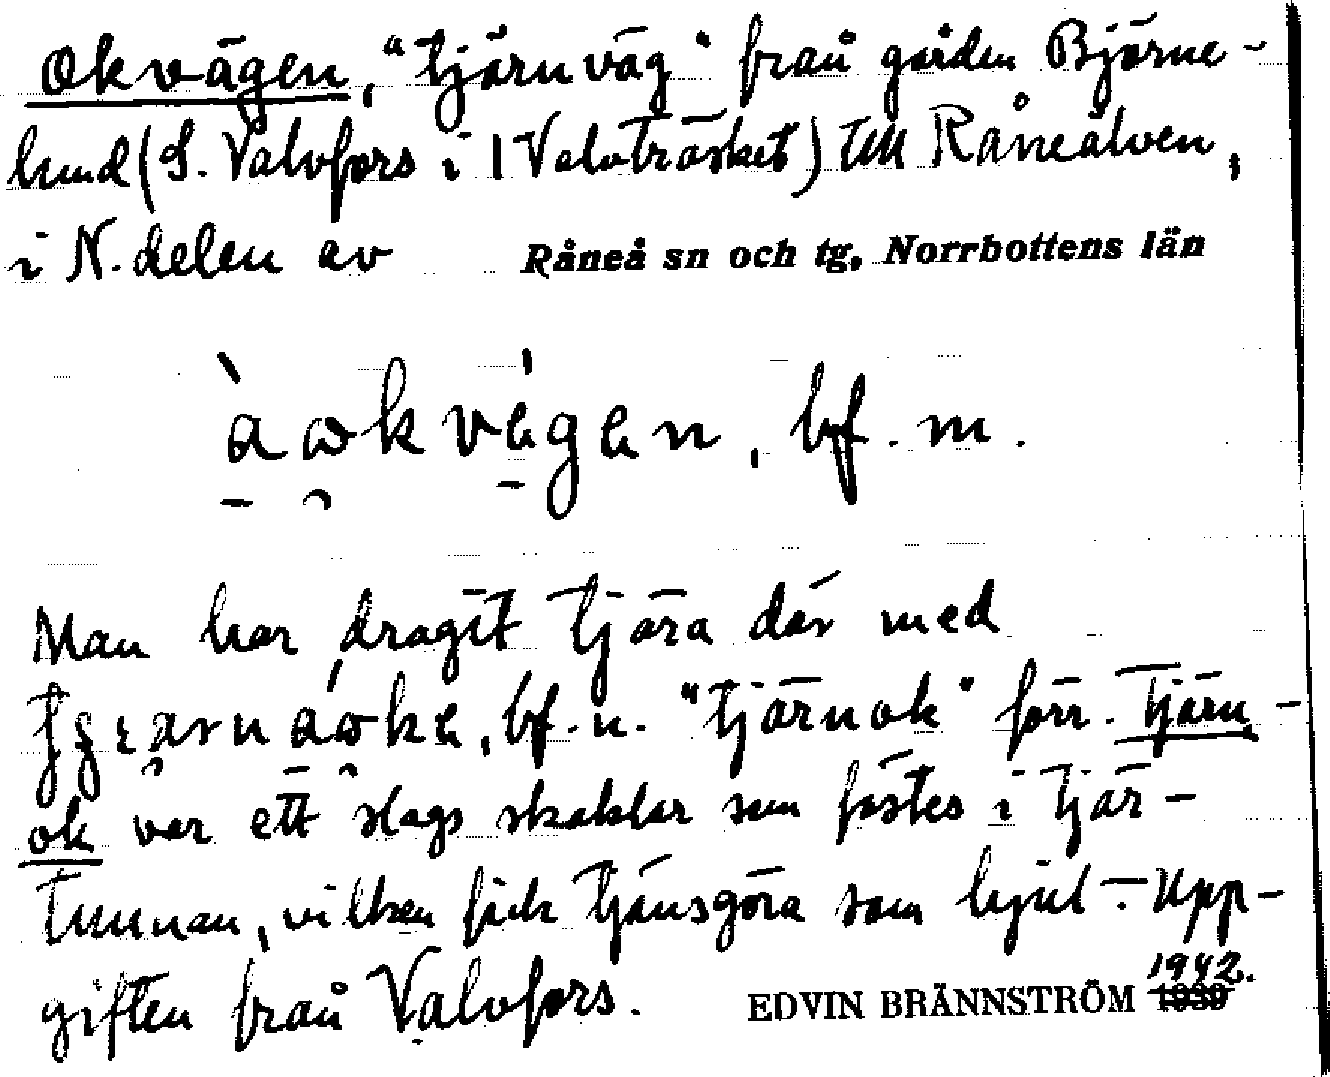 Okvägen, "tjärnväg" från gården Björne-
lund (S. Valvfors i 1 Valvträsket) till Råneälven,
i N. delen av Råneå sn och tg, Norrbottens län
bf. m.
Man har dragit tjära där med
bf. n. "tjärnok" förr. Tjärn-
ok var ett slags skaklar som fästes i tjär-
tunnan, vilken fick tjänsgöra som hjul. - Upp-
giften från Valvfors. EDVIN BRÄNNSTRÖM 1942.